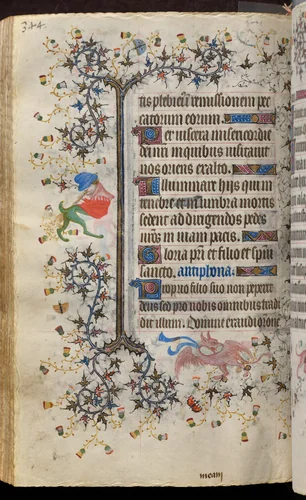 344.
tis plebi eius in remissionem pec
catorum eorum.
Per viscera misericordie
dei nri in quibus visitavit
nos oriens exalto.
Illuminare hijs qui in
tenebris et in umbra mortis
sedent ad dirigendos pedes
nros in viam pacis.
Gloria pri et filio et spui
sancto. antiphona.
Proprio filio suo non pepercit
deus sed pro nobis omnibus tradi
dit illum. Domine exaudi orone
meam